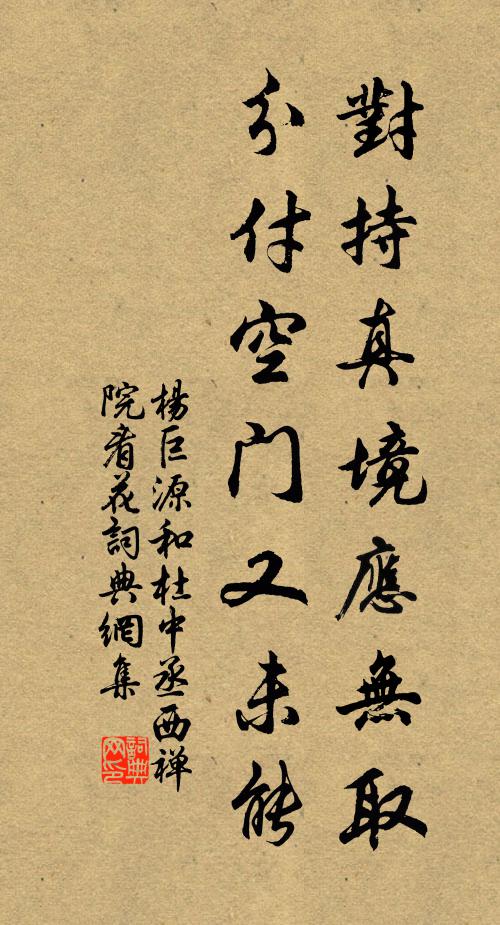 對持真境應無取
分付空门又未能
楊巨源和杜中丞西禅
院看花詞典網集
詞典
网印